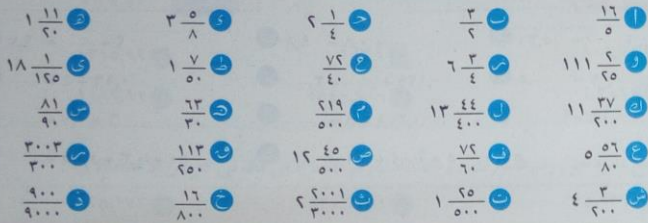 أ ١٦/٥ ب ٣/٢ حـ ٢ ١/٤ ء ٣ ٥/٨ هـ ١ ١١/٢٠
و ١١١ ٢/٢٥ ر ٦ ٣/٤ ح ٧٢/٤٠ ط ١ ٧/٥٠ ى ١٨ ١/١٢٥
ك ١١ ٣٧/٢٠٠ ل ١٣ ٤٤/٤٠٠ م ٢١٩/٥٠٠ ن ٦٣/٣٠ س ٨١/٩٠
ع ٥ ٥٦/٨٠ ف ٧٢/٦٠ ص ١٢ ٤٥/٥٠٠ ق ١١٣/٢٥٠ ر ٣٠٠٣/٣٠٠
ش ٤ ٣/٢٠٠ ت ١ ٢٥/٥٠٠ ث ٢ ٢٠٠١/٣٠٠٠ خ ١٦/٨٠٠ ذ ٩٠٠/٩٠٠٠